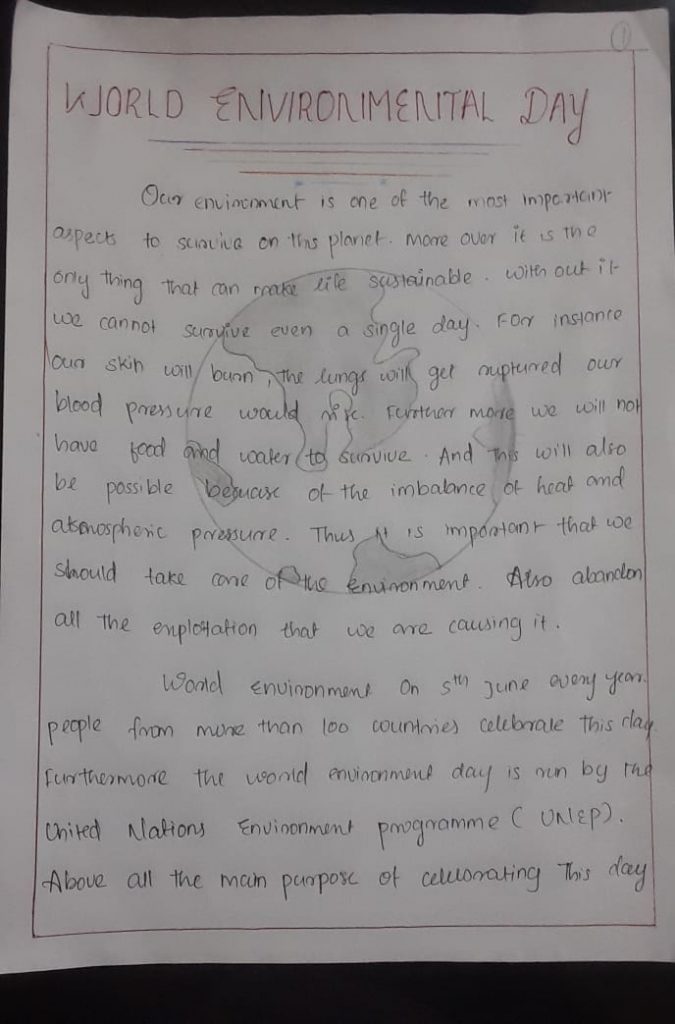 1
WORLD ENVIRONIMENITAL DAY
Our environment is one of the most important
aspects to survive on this planet. More over it is the
only thing that can make life sustainable. With out it
we cannot survive even a single day. For instance
our skin will burn, the lungs will get ruptured our
blood pressure would rise. Further more we will not
have food and water to survive. And this will also
be possible because of the imbalance of heat and
atomospheric pressure. Thus it is important that we
should take care of the environment. Also abandon
all the exploitation that we are causing it.
World environment On 5th June every year
people from more than 100 countries celebrate this day
Furthermore the world environment day is run by the
United Nations Environment programme (UNEP).
Above all the main purpose of celebrating this day